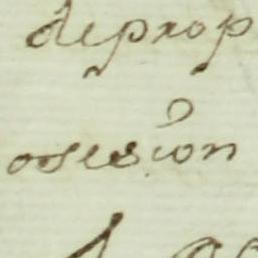 deprop
osesion